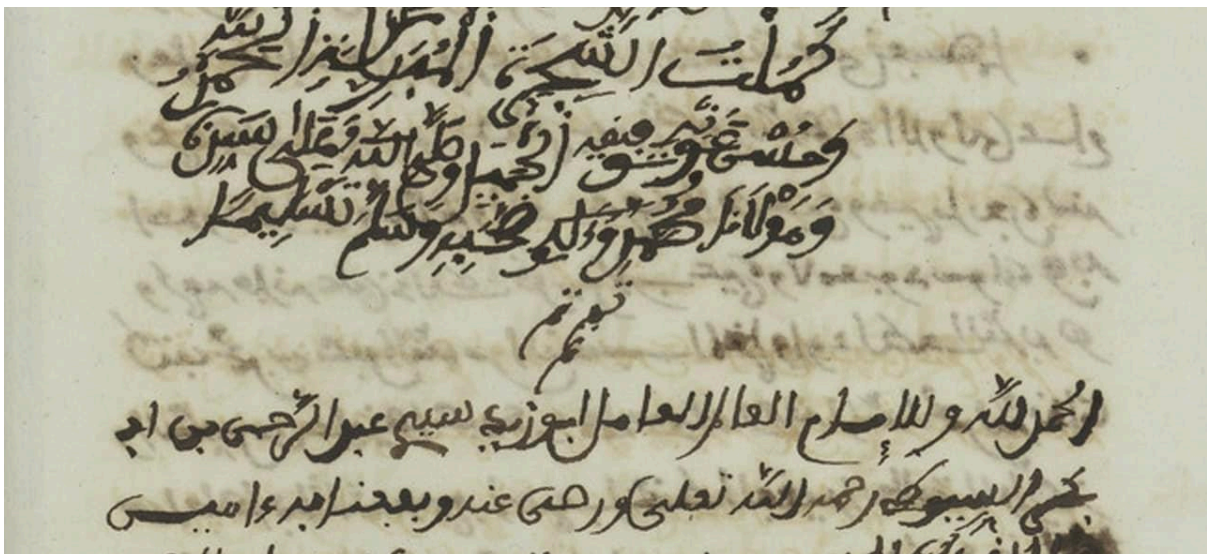 كملت النسخة المباركة بحمد الله
وحسن عونه وتوفيقه الجميل وصلى الله على سيدنا
ومولانا محمد وءاله وصحبه وسلم تسليما
تم تم تم
الحمد لله وللإمام العالم العامل ابو زيد سيدي عبد الرحمن بن ابي
بكر السيوطي رحمه الله تعلى ورضي عنه ونفعنا به ءامين